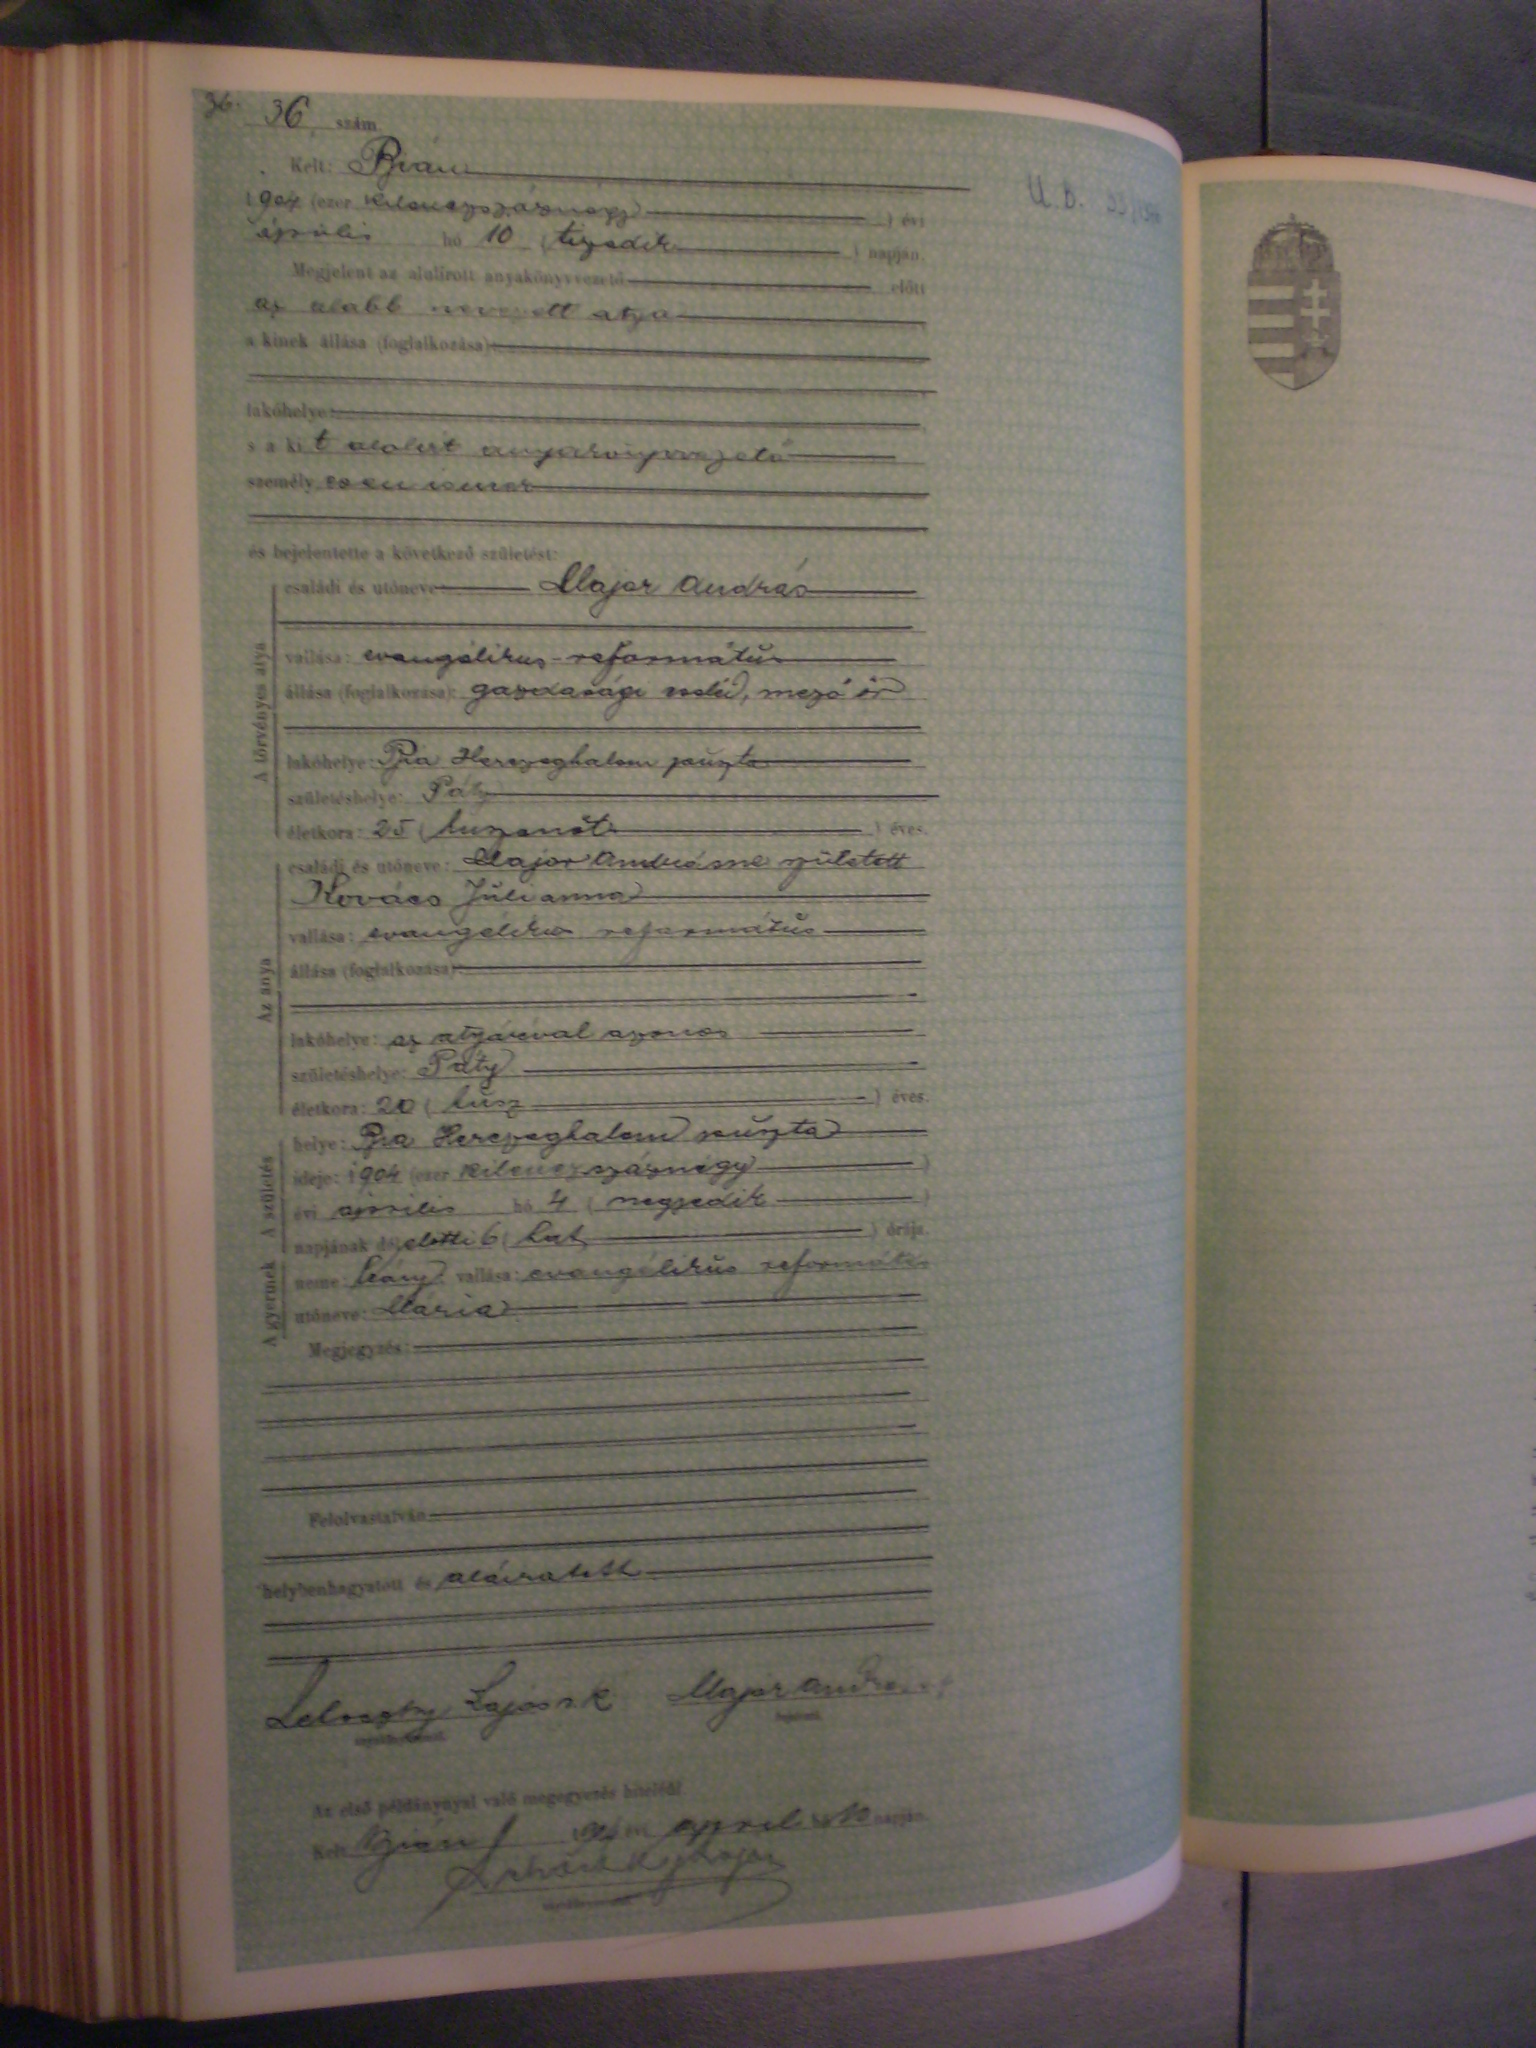 36.
36 szám
Kelt: Bián
1904 (ezer kilenczszáznégy) évi
április hó 10 (tizedik) napján.
Megjelent az alulirott anyakönyvvezető előtt
az alabb nevezett atya
a kinek állása (foglalkozása):
lakóhelye:
s a kit alolirt anyakönyvvezető
személyesen ismer
és bejelentette a következő születést:
A törvényes atya
családi és utóneve Major András
vallása: evangélikus-református
állása (foglalkozása): gazdasági cseléd, mező őr
lakóhelye: Bia Herczeghalom puszta
születéshelye: Páty
életkora: 25 (huszonöt) éves.
Az anya
családi és utóneve: Major Andrásné született
Kovács Julianna
vallása: evangélikus református
állása (foglalkozása):
lakóhelye: az atyáéval azonos
születéshelye: Páty
életkora: 20 (húsz) éves.
A születés
helye: Bia Herczeghalom puszta
ideje: 1904 (ezer kilencz száznégy)
évi április hó 4 (negyedik)
napjának délelőtti 6 (hat) órája.
A gyermek
neme: leány vallása: evangélikus református
utóneve: Mária
Megjegyzés:
Felolvastatván
helybenhagyatott és aláiratott
Lajos s.k. Major András
Az első példánynyal való megegyezés hiteléül
Kelt Bián 1904 évi april hó 10 napján.